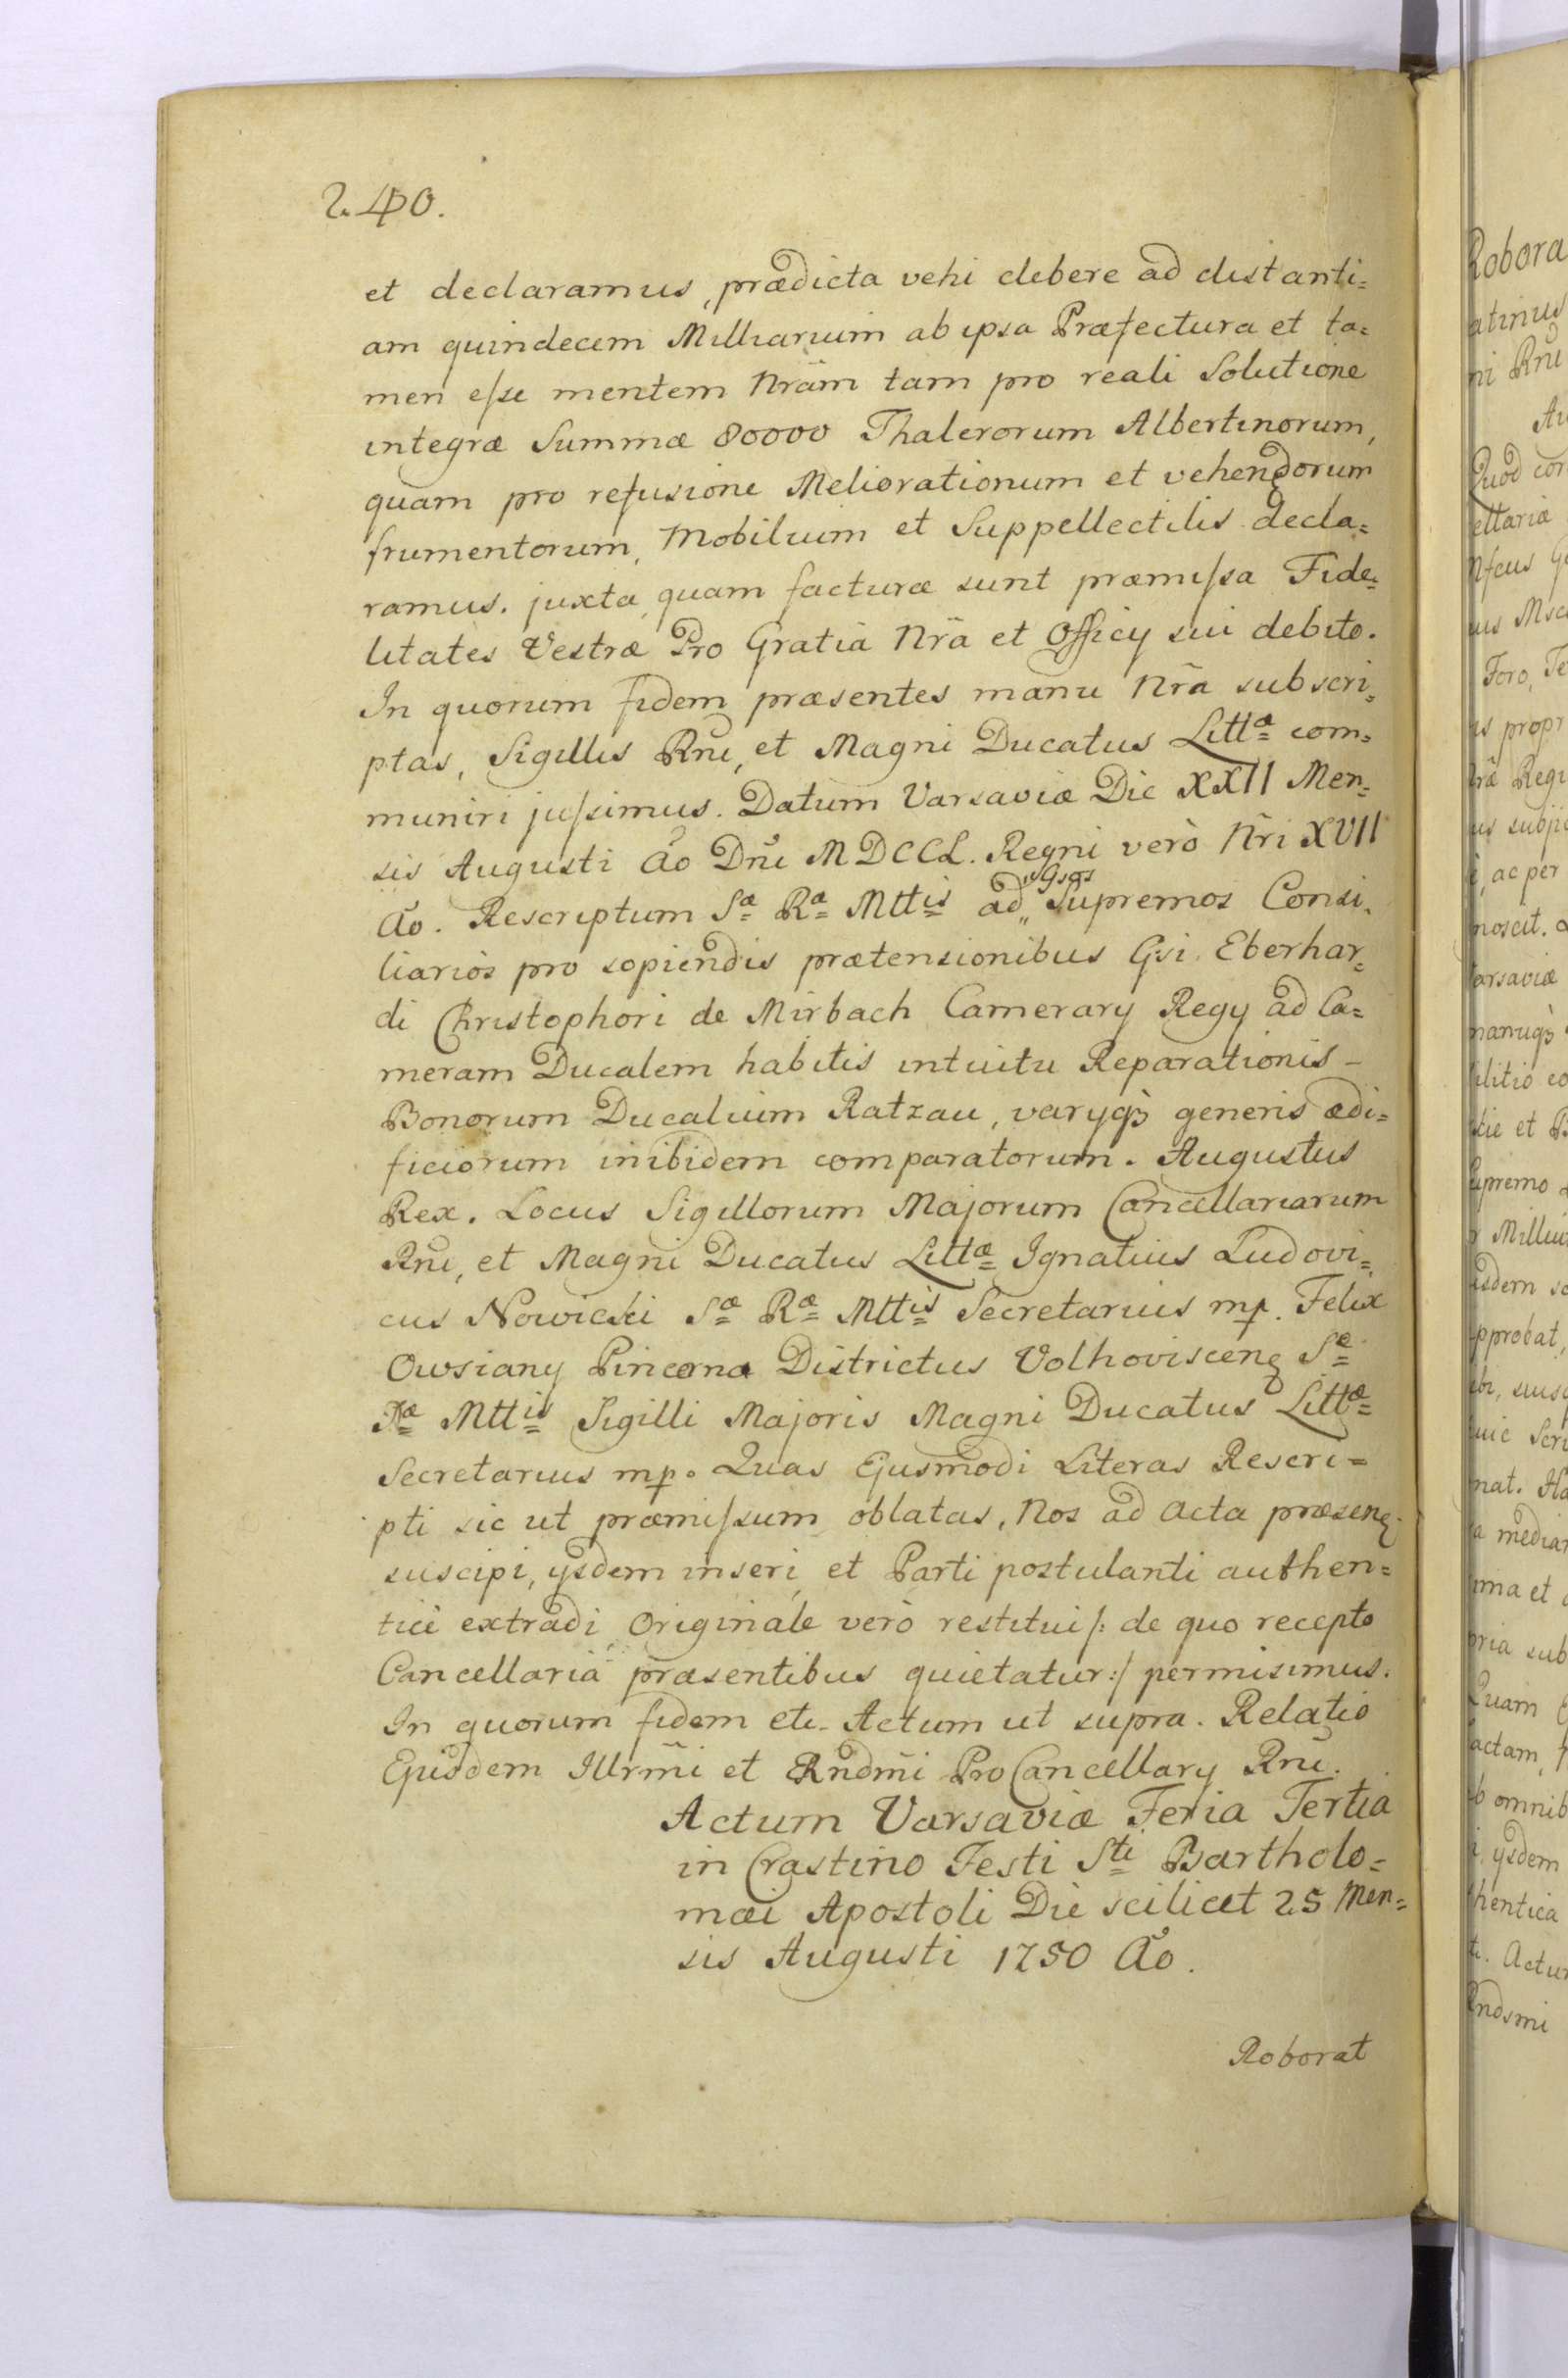 240.
et declaramus, prædicta vehi debere ad distanti=
am quindecim Milliarium ab ipsa Præfectura et ta=
men esse mentem Nrãm tam pro reali Solutione
integræ Summæ 80000 Thalerorum Albertinorum,
quam pro refusione Meliorationum et vehendorum
frumentorum, Mobilium et Suppellectilis decla=
ramus. juxta quam facturæ sunt præmissa Fide=
litates Vestræ Pro Gratia Nrã et Officy sui debito.
In quorum fidem præsentes manu Nrã subscri=
ptas, Sigillis Rnĩ, et Magni Ducatus Littæ com=
muniri jussimus. Datum Varsaviæ Die XXII Men=
sis Augusti Ão Dnĩ MDCCL. Regni verò Nrĩ XVII
Ão. Rescriptum Sæ Ræ Mttis ad Gsos Supremos Consi=
liarios pro sopiendis prætensionibus Gsi. Eberhar=
di Christophori de Mirbach Camerary Regy ad Ca=
meram Ducalem habitis intuitu Reparationis
Bonorum Ducalium Ratzau, varyq3 generis ædi=
ficiorum inibidem comparatorum. Augustus
Rex. Locus Sigillorum Majorum Cancellariarum
Rnĩ, et Magni Ducatus Littæ Ignatius Ludovi=
cus Nowicki Sæ Ræ Mttis Secretarius mp. Felix
Owsiany Pincerna Districtus Volhoviscen Sæ
Ræ Mttis Sigilli Majoris Magni Ducatus Littæ
Secretarius mp. Quas Ejusmodi Literas Rescri=
pti sic ut præmissum oblatas, Nos ad Acta præsen
suscipi, ysdem inseri et Parti postulanti authen=
tice extradi, Originale verò restitui /: de quo recepto
Cancellaria præsentibus quietatur :/ permisimus.
In quorum fidem etc. Actum ut supra. Relatio
Ejusdem Illrmĩ et Rndmĩ ProCancellary Rnĩ.
Actum Varsaviæ Feria Tertia
in Crastino Festi Sti Bartholo=
mæi Apostoli Die scilicet 25 Men=
sis Augusti 1750 Ão.
Roborat